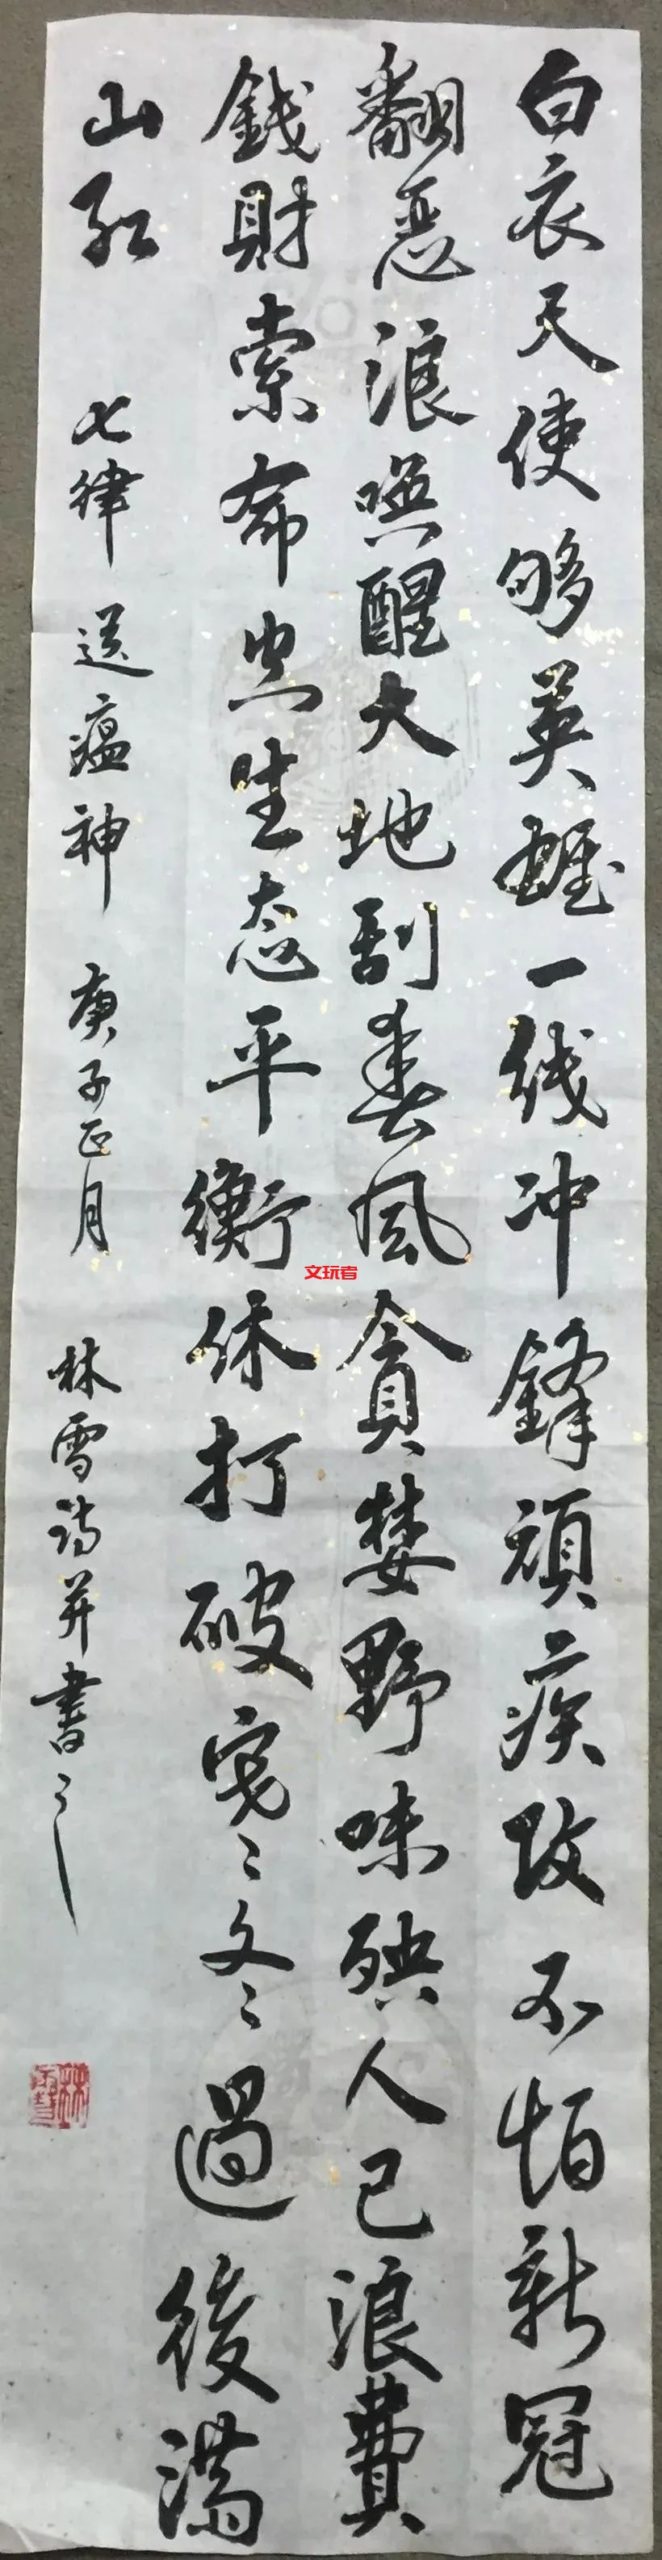 白衣天使够英雄一线冲鋒頑疾攻不怕新冠
翻恶浪唤醒大地刮春风贪婪野味殃人已浪費
錢財索命凶生态平衡休打破寒冬過後滿
山红 七律 送瘟神 庚子正月 林雪诗并書之
文玩者